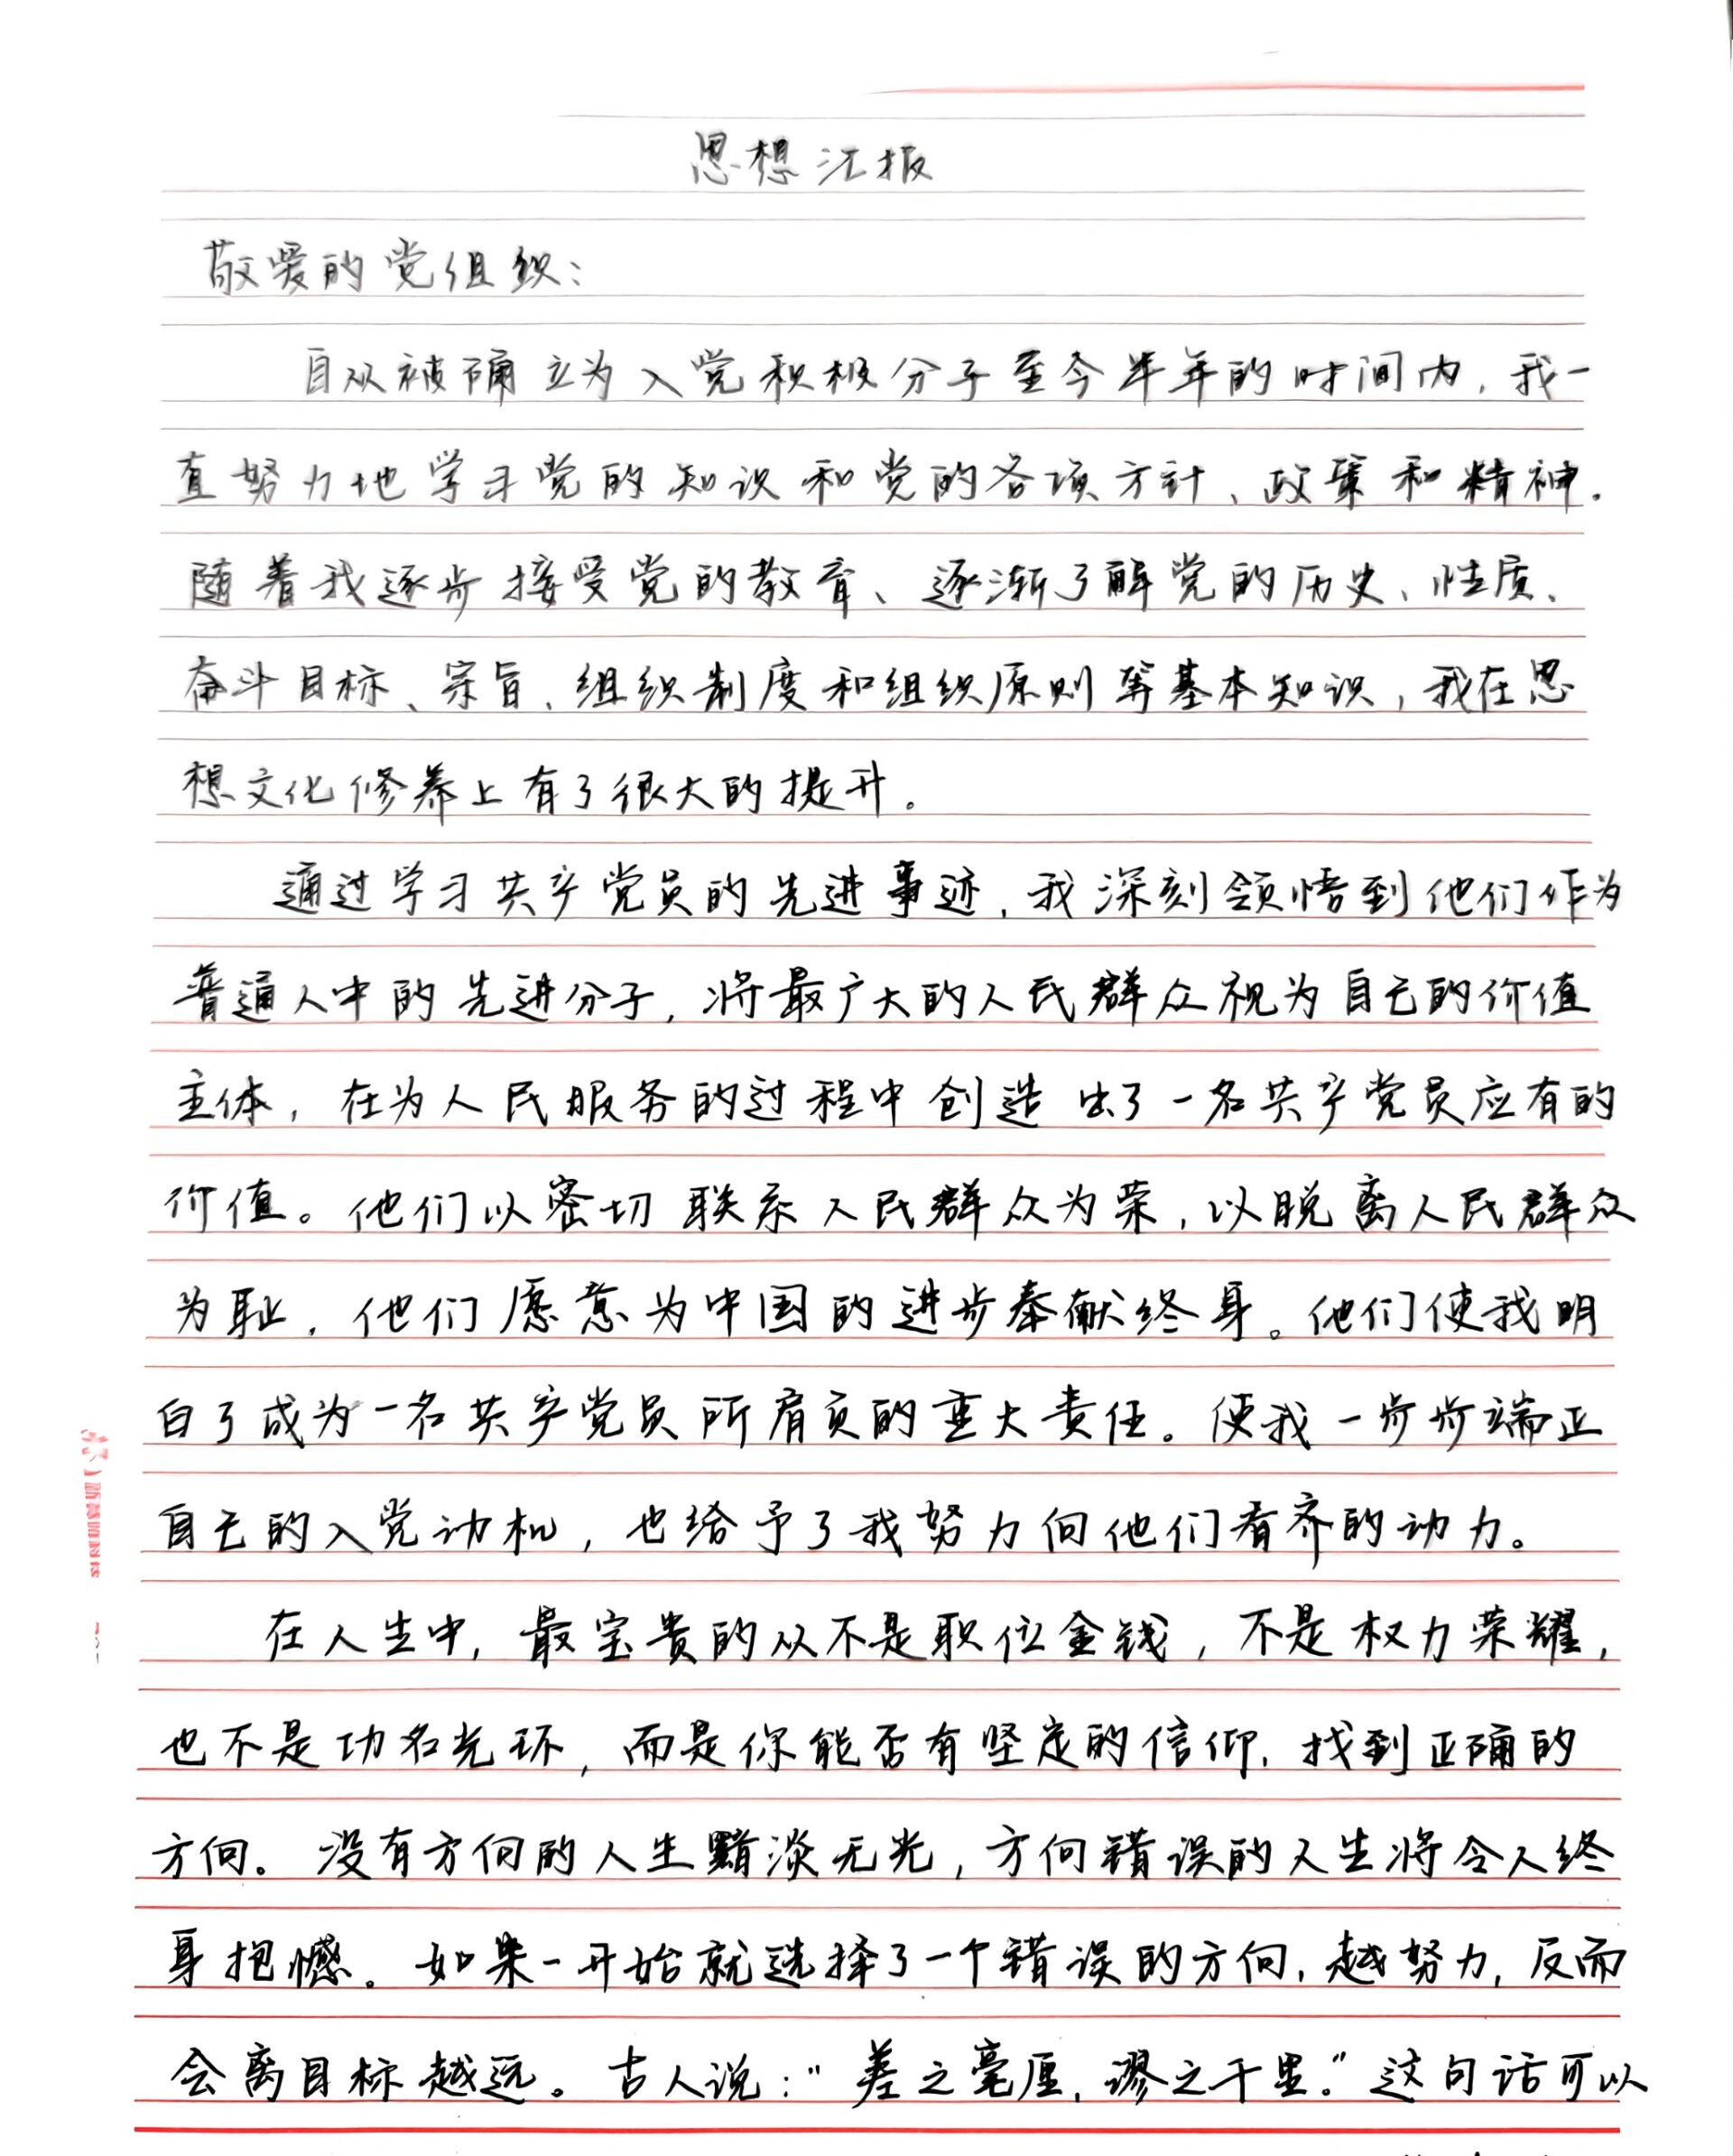 思想汇报
敬爱的党组织：
自从被确立为入党积极分子至今半年的时间内，我一
直努力地学习党的知识和党的各项方针、政策和精神。
随着我逐步接受党的教育、逐渐了解党的历史、性质、
奋斗目标、宗旨、组织制度和组织原则等基本知识，我在思
想文化修养上有了很大的提升。
通过学习共产党员的先进事迹，我深刻领悟到他们作为
普通人中的先进分子，将最广大的人民群众视为自己的价值
主体，在为人民服务的过程中创造出了一名共产党员应有的
价值。他们以密切联系人民群众为荣，以脱离人民群众
为耻，他们愿意为中国的进步奉献终身。他们使我明
白了成为一名共产党员所肩负的重大责任。使我一步步端正
自己的入党动机，也给予了我努力向他们看齐的动力。
在人生中，最宝贵的从不是职位金钱，不是权力荣耀，
也不是功名光环，而是你能否有坚定的信仰，找到正确的
方向。没有方向的人生黯淡无光，方向错误的人生将令人终
身抱憾。如果一开始就选择了一个错误的方向，越努力，反而
会离目标越远。古人说：“差之毫厘，谬之千里。”这句话可以